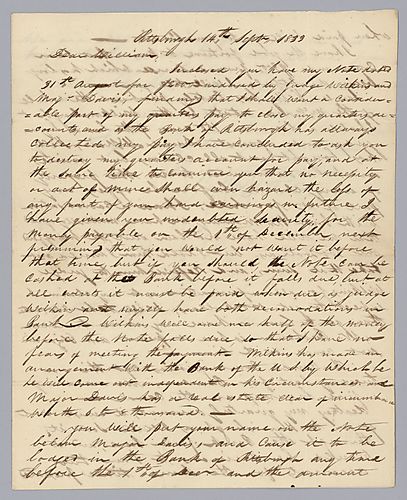 Pittsburgh 14th Sept. 1833
Dear William,
Enclosed you have my Note dated
31st August for $500 endorsed by Judge Wilkins and
Maj. Davis, finding that I shall want a consider-
able part of my quarters pay to close my quarters ac-
counts, and as the Bank of Pittsburgh has allways
collected my pay I have concluded to ask you
to destroy my quarters account for pay, and at
the same time to convince you that no necessity
or act of mine shall ever hazard the loss of
any part of your hard earnings in future I
have given you undoubted security for the
money payable on the 1st of December next
presuming that you would not want it before
that time, but if you should the Note can be
cashed at the Bank before it falls due, but at
all events it must be paid when due as Judge
Wilkins and myself have both accomodations in
Bank Wilkins will owe me half of the money
before the Note falls due so that I have no
fears of meeting the payment. Wilkins has made an
arrangement with the Bank of the U S by which he
has come out independent in his circumstances and
Major Davis has a real estate clear of incumbrance
worth 6 to 8 thousand.
You will put your name on the Note
below Major Davis, and cause it to be
lodged in the Bank of Pittsburgh any time
before the 1st of Decr and the amount